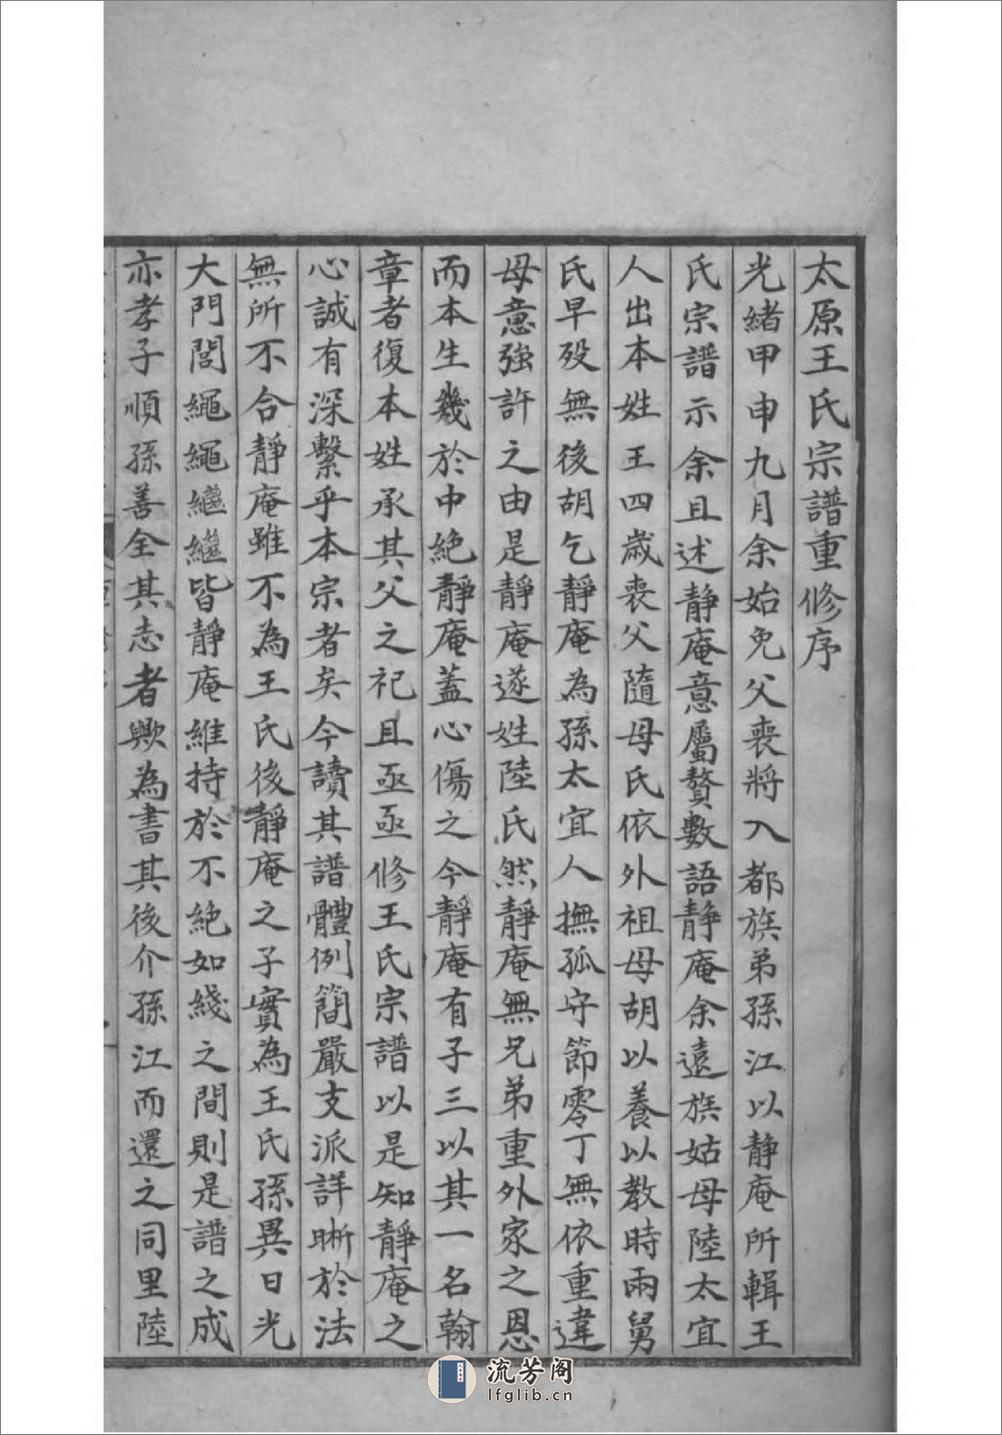 太原王氏宗譜重修序
光緒甲申九月余始免父喪將入都族弟孫江以靜庵所輯王
氏宗譜示余且述靜庵意屬贅數語靜庵余遠族姑母陸太宜
人出本姓王四歲喪父隨母氏依外祖母胡以養以教時兩舅
氏早歿無後胡乞靜庵為孫太宜人撫孤守節零丁無依重違
母意強許之由是靜庵遂姓陸氏然靜庵無兄弟重外家之恩
而本生幾於中絶靜庵蓋心傷之今靜庵有子三以其一名翰
章者復本姓承其父之祀且亟亟修王氏宗譜以是知靜庵之
心誠有深繫乎本宗者矣今讀其譜體例簡嚴支派詳晰於法
無所不合靜庵雖不為王氏後靜庵之子實為王氏孫異日光
大門閭繩繩繼繼皆靜庵維持於不絶如綫之間則是譜之成
亦孝子順孫善全其志者歟為書其後介孫江而還之同里陸
流芳阁
lfglib.cn